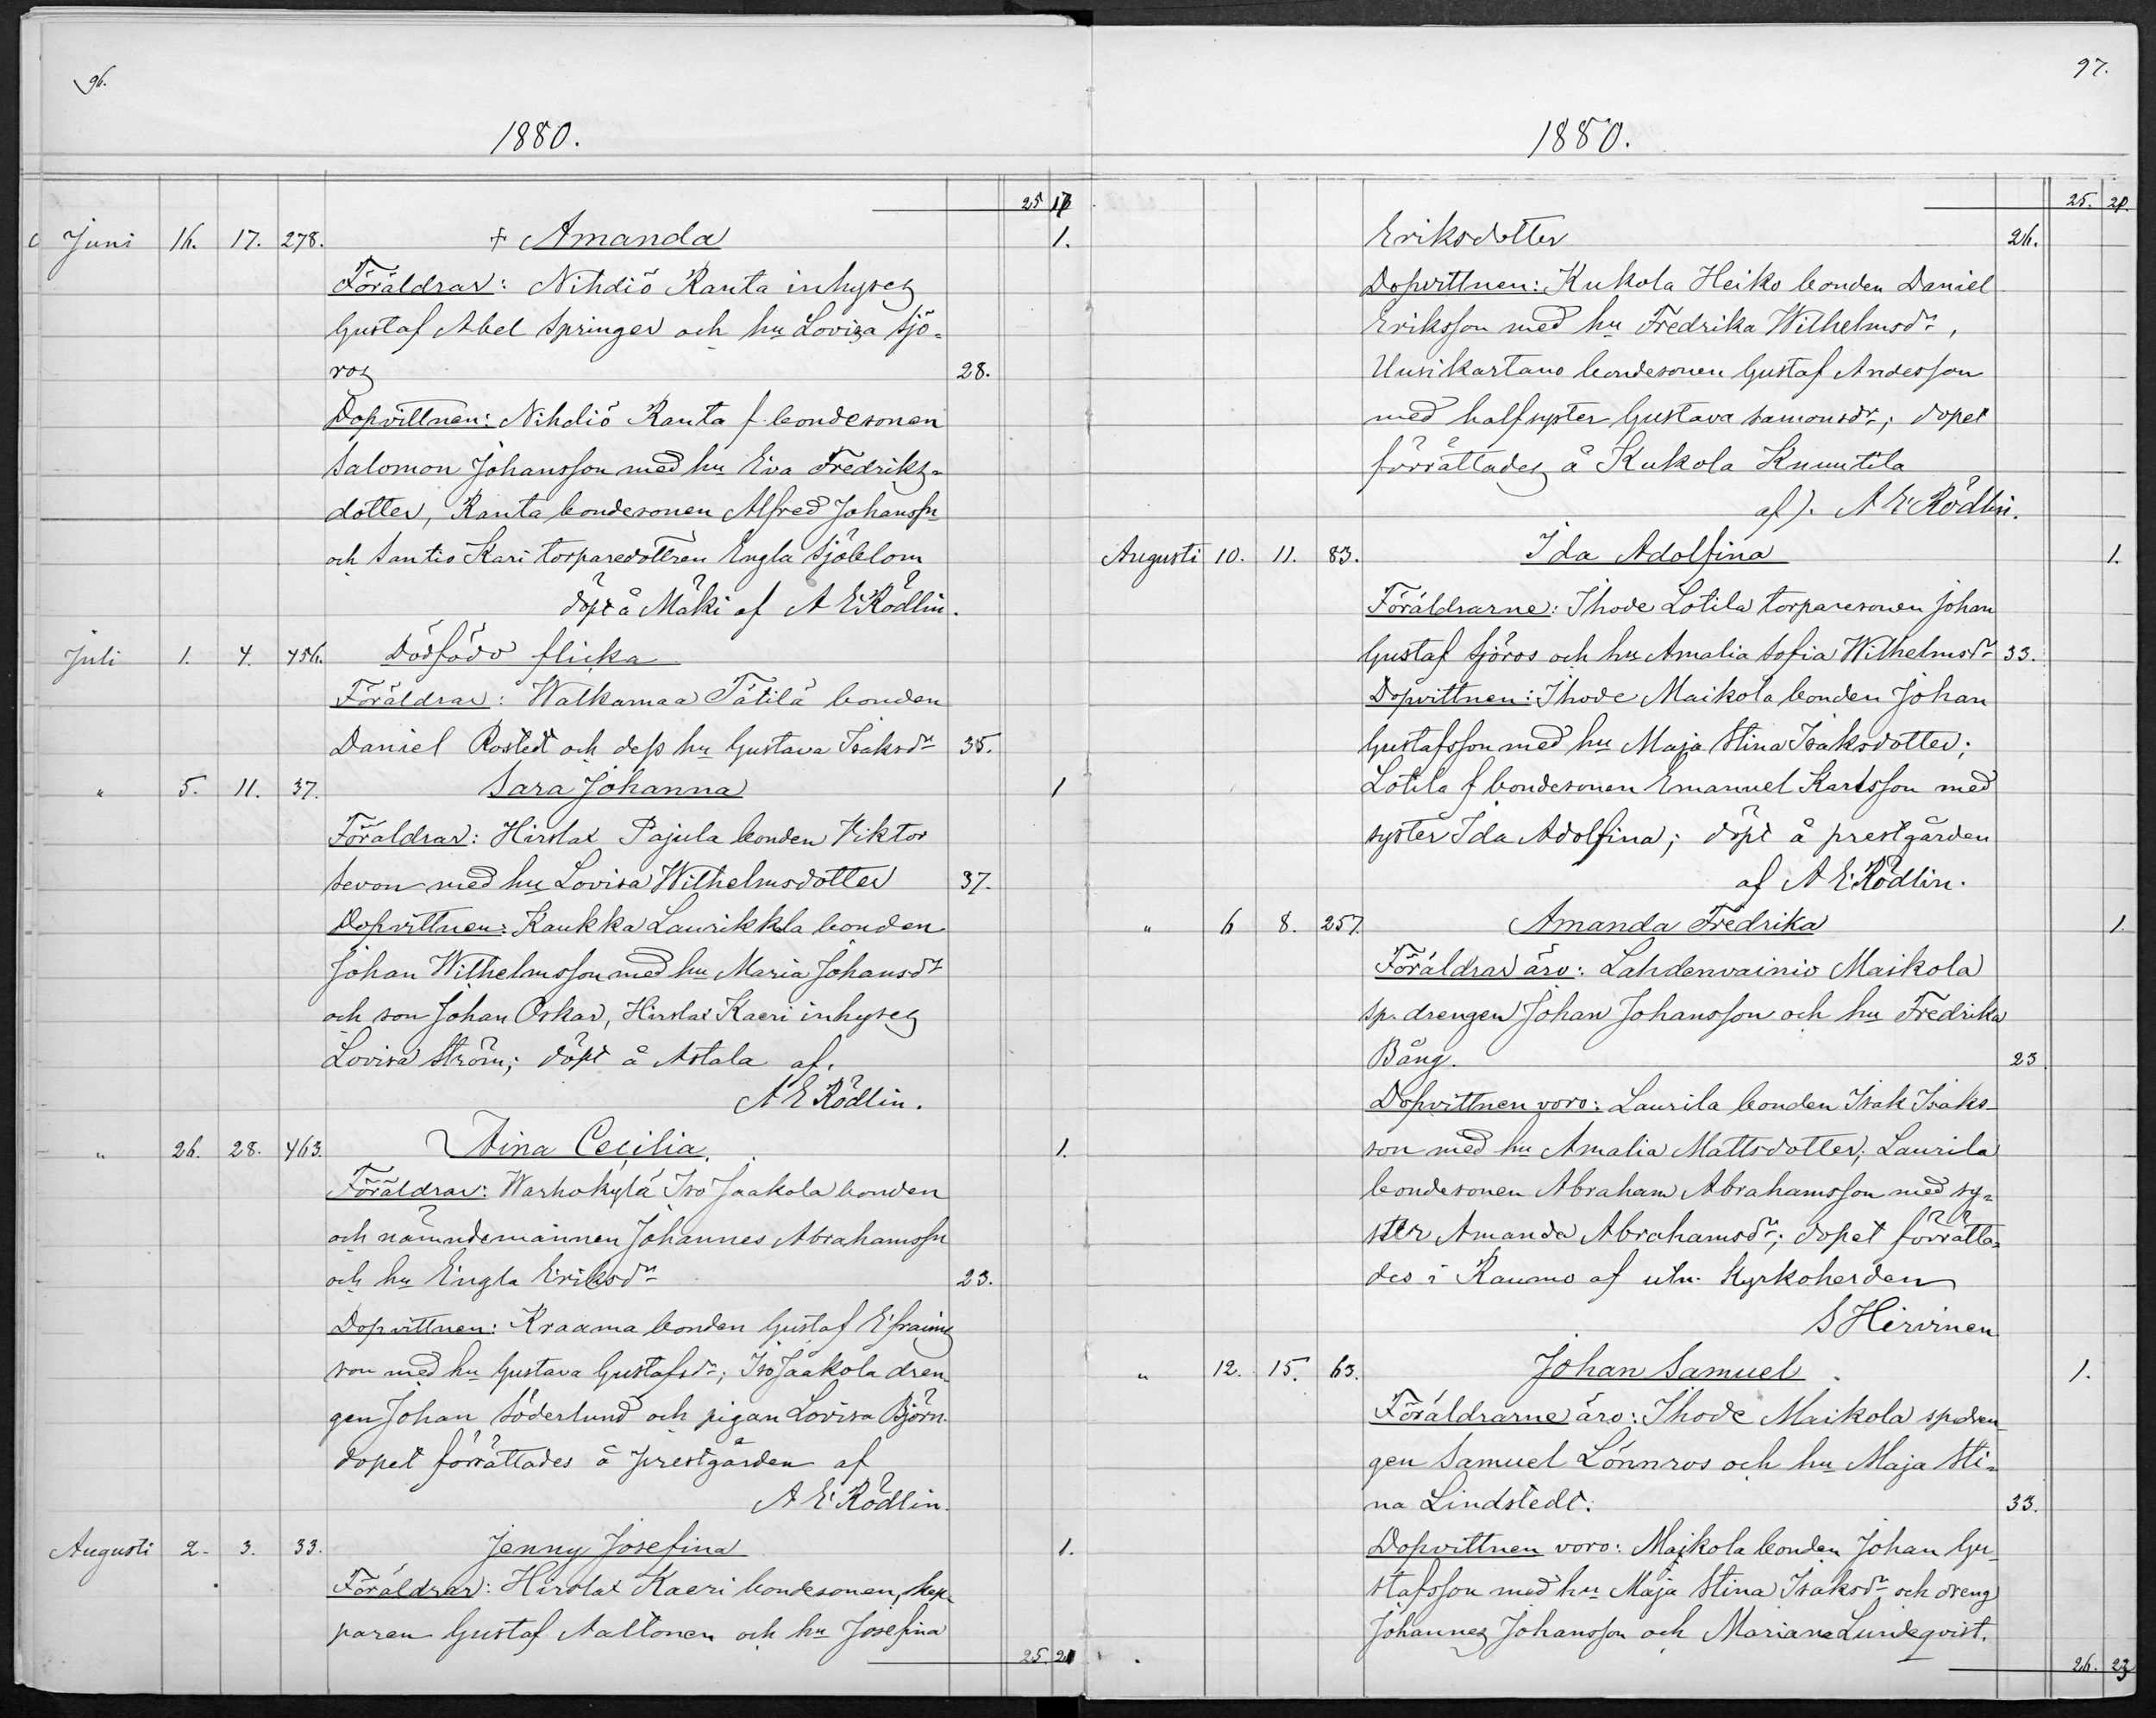 96.
1880.
25 17
Juni 16. 17. 278. + Amanda 1.
Föräldrar: Nihdiö Ranta inhyses
Gustaf Abel Springer och hu Lovisa Sjö-
ros 28.
Dopvittnen: Nihdiö Ranta f. bondesonen
Salomon Johansson med hu Eva Fredriks-
dotter, Ranta bondesonen Alfred Johanssn
och Santio Kari torparedottren Engla Sjöblom
döpt å Mäki af A E Rödlin.
Juli 1. 4. 456. Dödfödd flicka
Föräldrar: Walkamaa Tätilä bonden
Daniel Rostedt och dess hu Gustava Isaksdr 35.
" 5. 11. 37. Sara Johanna 1
Föräldrar: Hirslax Pajula bonden Viktor
Sevon med hu Lovisa Wilhelmsdotter 37.
Dopvittnen: Kaukka Laurikkala bonden
Johan Wilhelmsson med hu Maria Johansdr
och son Johan Oskar, Hirslax Kaeri inhyses
Lovisa Ström; döpt å Astala af.
A E Rödlin.
" 26. 28. 463. Aina Cecilia. 1.
Föräldrar: Warhokylä Iso Jaakola bonden
och nämndemannen Johannes Abrahamssn
och hu Engla Eriksdr 23.
Dopvittnen: Kraama bonden Gustaf Efraims
son med hu Gustava Gustafsdr; Iso Jaakola dren-
gen Johan Söderlund och pigan Lovisa Björn.
dopet förrättades å prestgården af
A E Rödlin.
Augusti 2. 3. 33. Jenny Josefina 1.
Föräldrar: Hirslax Kaeri bondesonen, skep-
paren Gustaf Aaltonen och hu Josefina
25. 21
97.
1880.
25. 21.
Eriksdotter 26.
Dopvittnen: Kukola Heiko bonden Daniel
Eriksson med hu Fredrika Wilhelmsdr,
Uusikartano bondesonen Gustaf Andersson
med halfsyster Gustava Samonsdr; dopet
förrättades å Kukola Knuutila
af). A E Rödlin.
Augusti 10. 11. 83. Ida Adolfina 1.
Föräldrarne: Ihode Lötila torparesonen Johan
Gustaf Sjöros och hu Amalia Sofia Wilhelmsdr 33.
Dopvittnen: Ihode Maikola bonden Johan
Gustafsson med hu Maja Stina Isaksdotter;
Lötila f bondesonen Emanuel Karlsson med
syster Ida Adolfina; döpt å prestgården
af A E Rödlin.
" 6 8. 257. Amanda Fredrika 1.
Föräldrar äro: Lahdenvainio Maikola
sp. drengen Johan Johansson och hu Fredrika
Bäng. 23
Dopvittnen voro: Laurila bonden Isak Isaks-
son med hu Amalia Mattsdotter; Laurila
bondesonen Abraham Abrahamsson med sy-
ster Amanda Abrahamsdr; dopet förrätta-
des i Raumo af utn. Kyrkoherden
S Hirvinen
" 12. 15. 63. Johan Samuel. 1.
Föräldrarne äro: Ihode Maikola sp. dren-
gen Samuel Lönnros och hu Maja Sti-
na Lindstedt. 33.
Dopvittnen voro: Maikola bonden Johan Gu-
stafsson med hu Maja Stina Isaksdr och dreng
Johannes Johansson och Mariana Lindeqvist.
26. 23